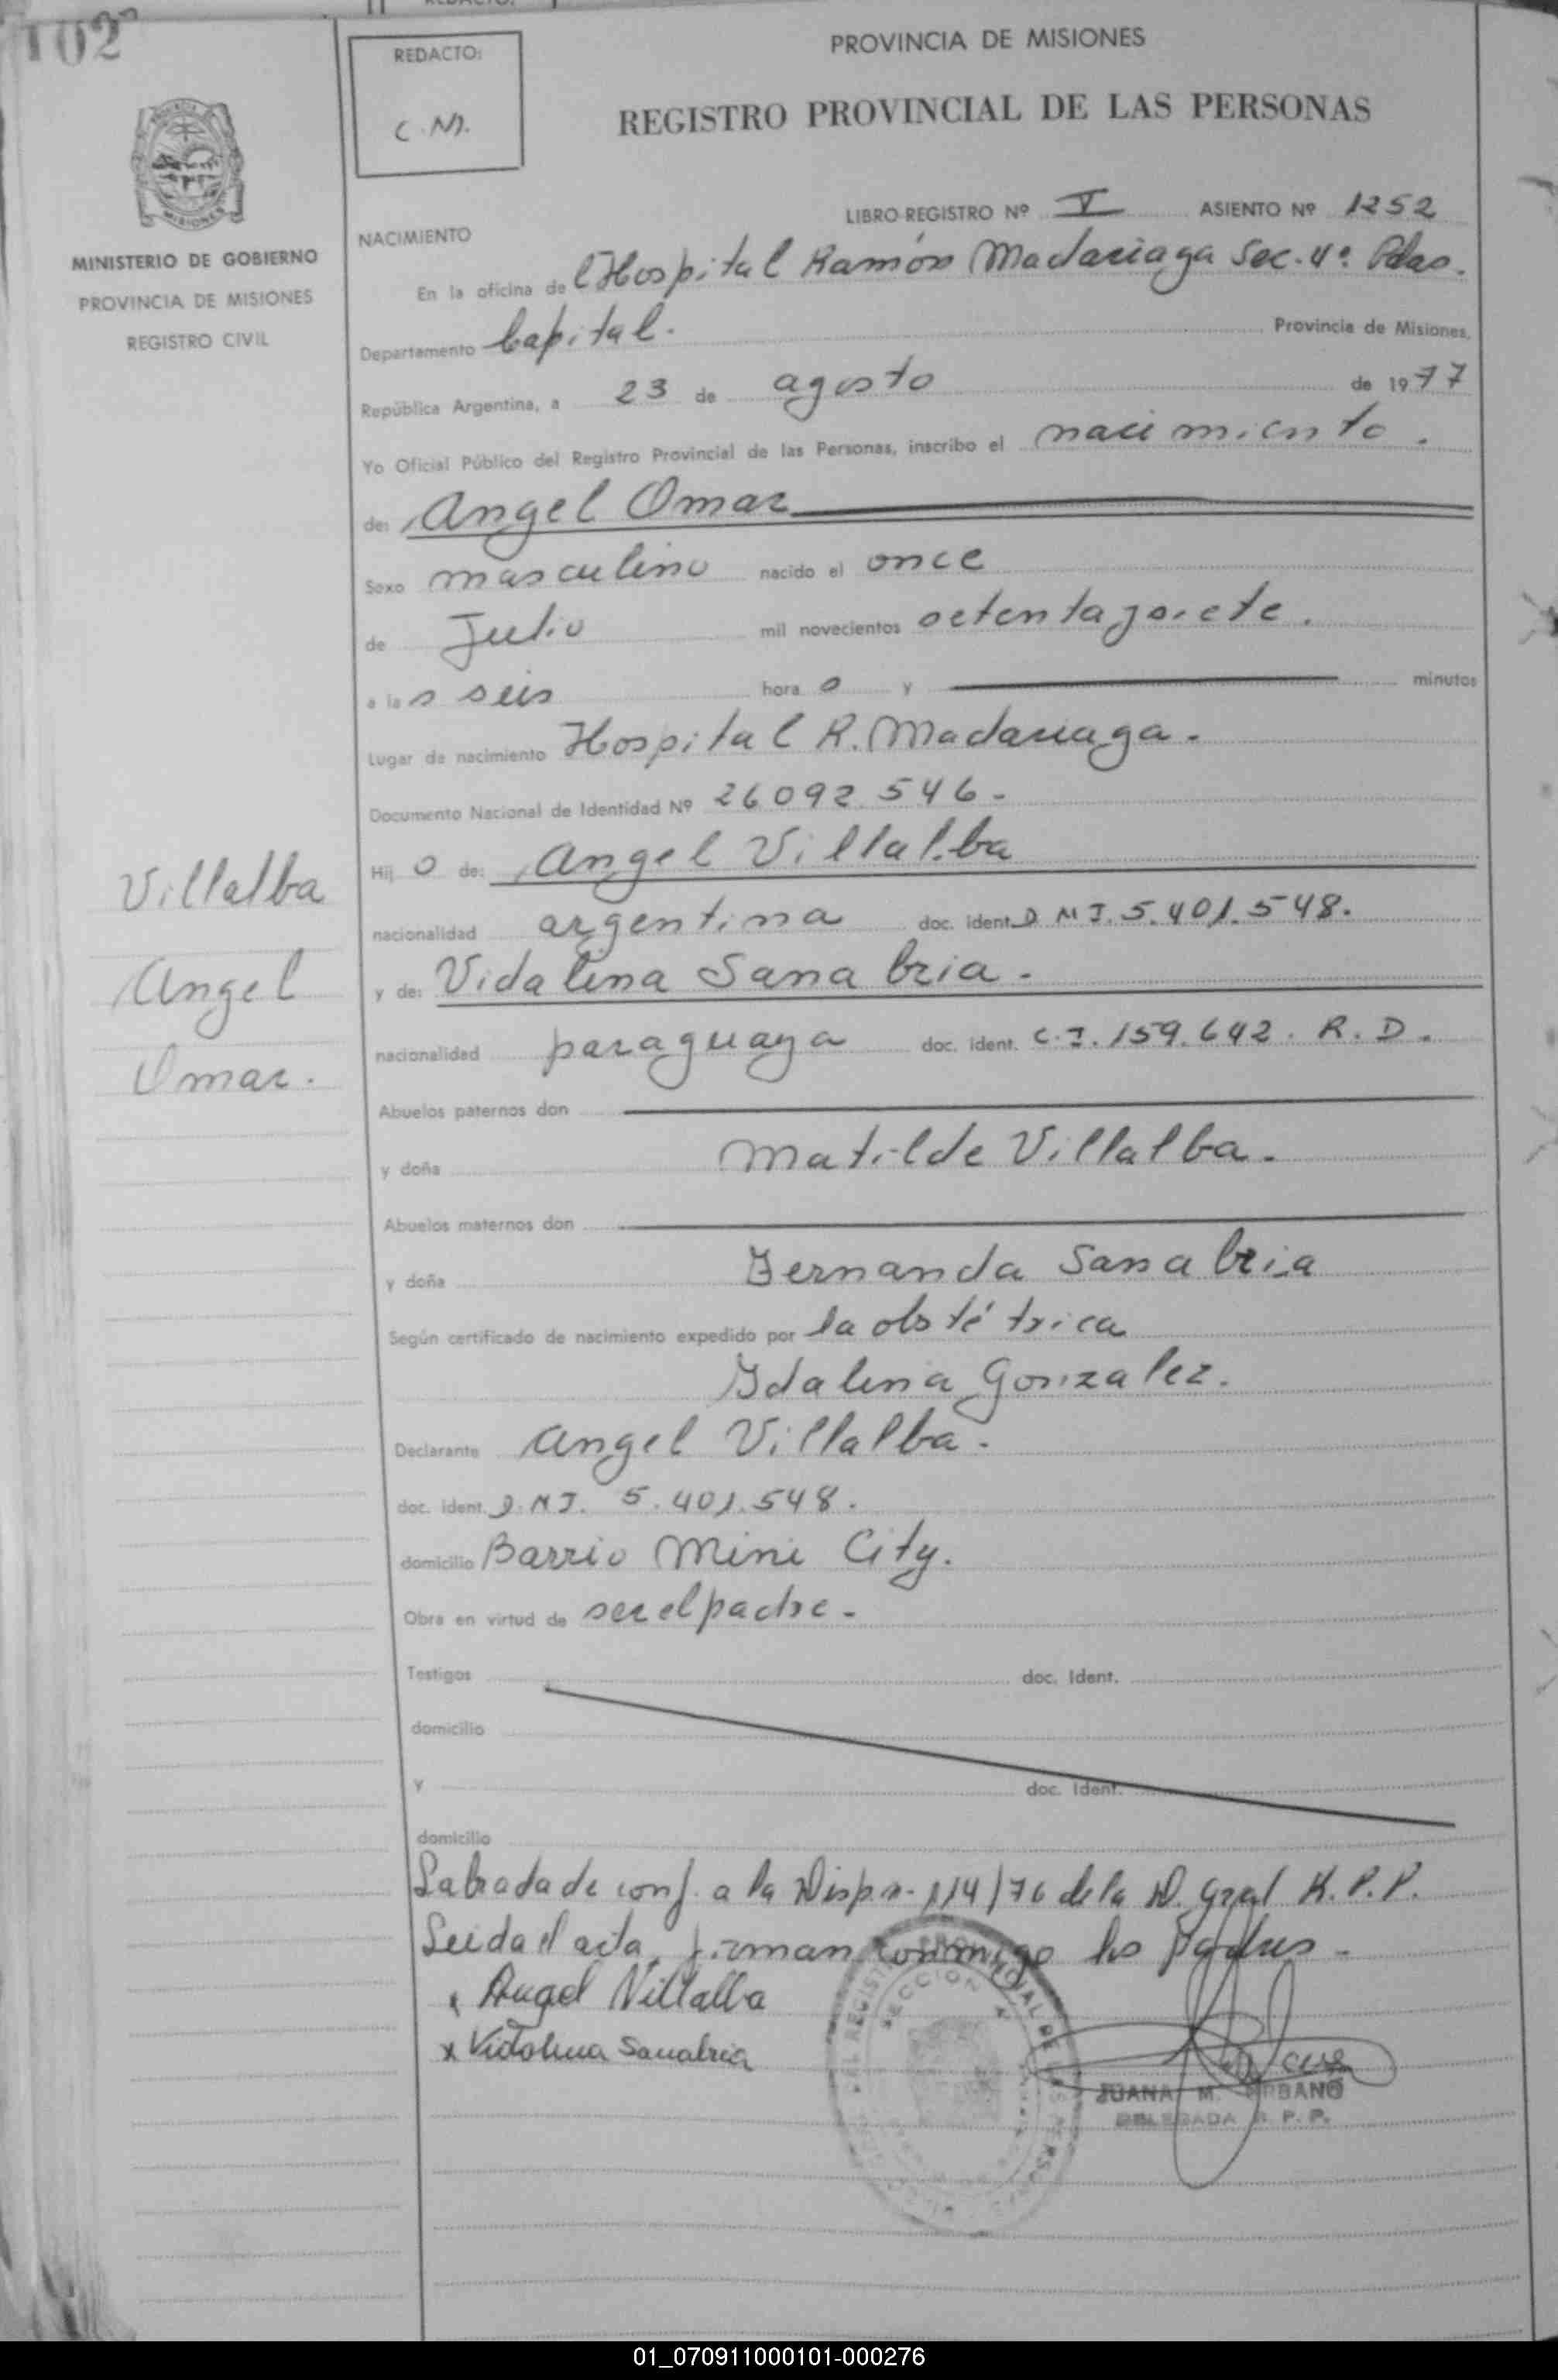 102
REDACTO:
C.N.
MINISTERIO DE GOBIERNO
PROVINCIA DE MISIONES
REGISTRO CIVIL
PROVINCIA DE MISIONES
REGISTRO PROVINCIAL DE LAS PERSONAS
LIBRO REGISTRO Nº V ASIENTO Nº 1252
NACIMIENTO
En la oficina del Hospital Ramón Madariaga Sec. 4ª. Pdas.
Departamento Capital. Provincia de Misiones,
República Argentina, a 23 de agosto de 1977
Yo Oficial Público del Registro Provincial de las Personas, inscribo el nacimiento.
de: Angel Omar
Sexo masculino nacido el once
de Julio mil novecientos setenta y siete.
a las seis hora s y minutos
Lugar de nacimiento Hospital R. Madariaga.
Documento Nacional de Identidad Nº 26092.546.
Hijo de: Angel Villalba
nacionalidad argentina doc. ident. D.N.I. 5.401.548.
y de: Vidalina Sanabria.
nacionalidad paraguaya doc. ident. C.I. 159.642. R.D.
Abuelos paternos don
y doña Matilde Villalba.
Abuelos maternos don
y doña Fernanda Sanabria
Según certificado de nacimiento expedido por la obstétrica
Idalina Gonzalez.
Declarante Angel Villalba.
doc. ident. D.N.I. 5.401.548.
domicilio Barrio Mini City.
Obra en virtud de ser el padre.
Testigos doc. Ident.
domicilio
y doc. Ident.
domicilio
Labrada de conf. a la Disp. n. 114/76 de la D. Gral R.P.P.
Leida el acta, firman conmigo los padres.
x Angel Villalba
x Vidalina Sanabria
JUANA M. URBANO
DELEGADA R. P. P.
Villalba
Angel
Omar.
01_070911000101-000276